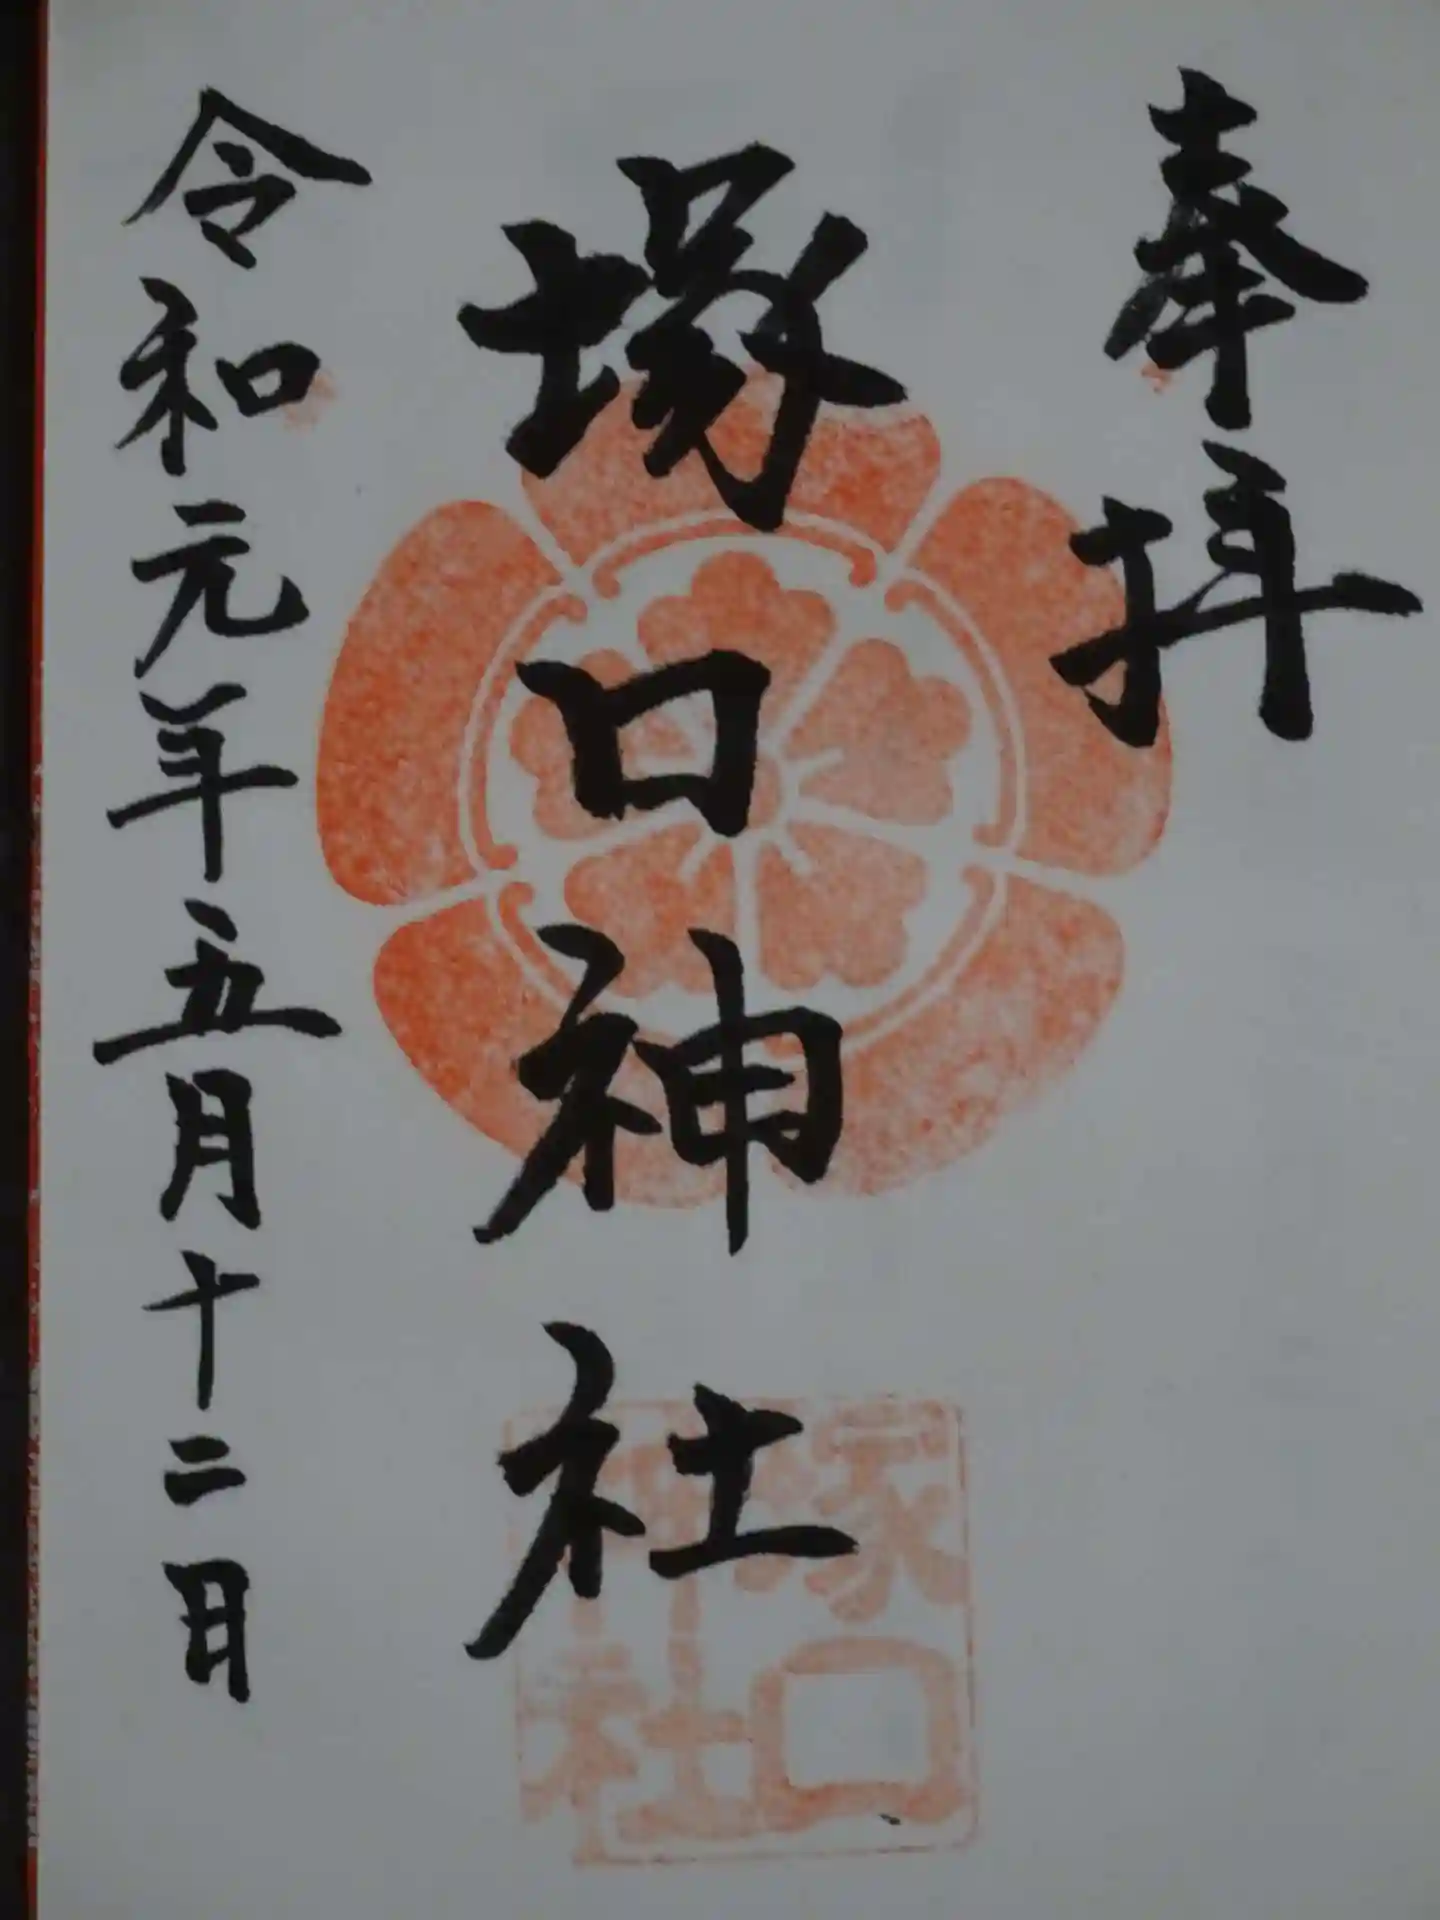 奉拝
塚口神社
令和元年五月十二日
塚口
神社